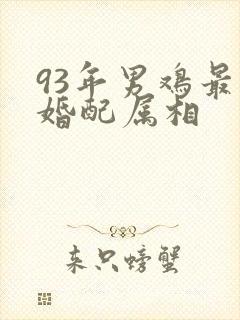 93年男鸡最
婚配属相
来只螃蟹